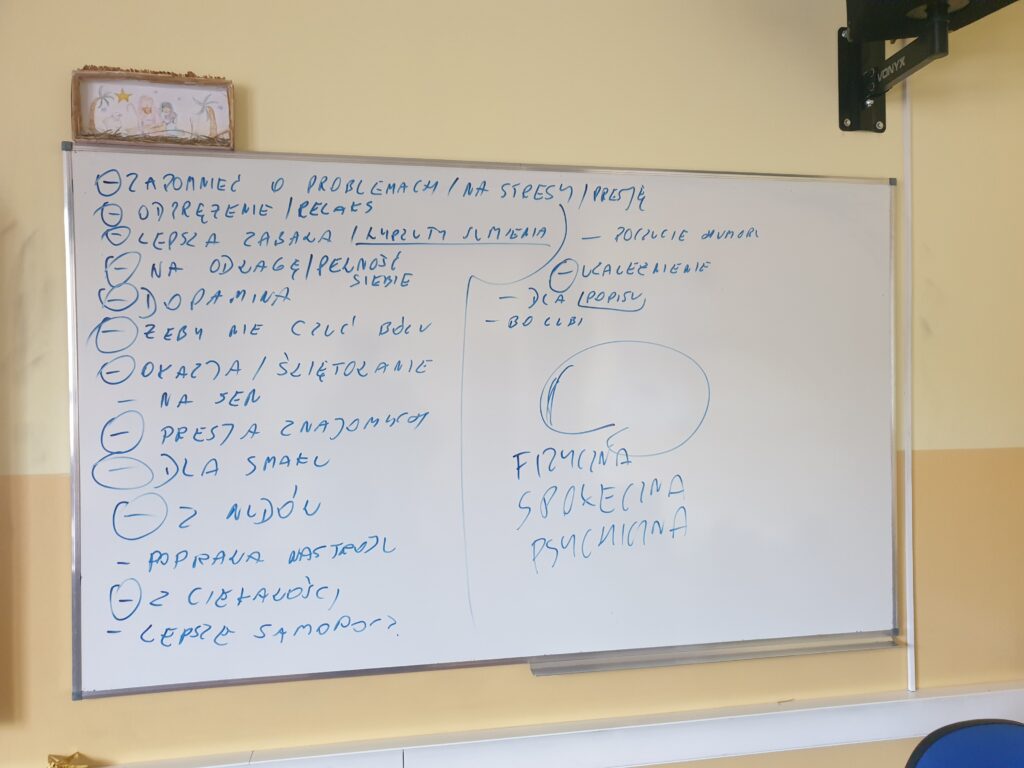 VONYX
- ZAPOMNIEĆ O PROBLEMACH / NA STRESY / PRESJĘ
- ODPRĘŻENIE / RELAKS
- LEPSZA ZABAWA / WYRZUTY SUMIENIA
- NA ODWAGĘ / PEWNOŚĆ
SIEBIE
- DOPAMINA
- ŻEBY NIE CZUĆ BÓLU
- OKAZJA / ŚWIĘTOWANIE
- NA SEN
- PRESJA ZNAJOMYCH
- DLA SMAKU
- Z NUDÓW
- POPRAWA NASTROJU
- Z CIEKAWOŚCI
- LEPSZE SAMOPOCZ.
- POCZUCIE HUMORU
- UZALEŻNIENIE
- DLA POPISU
- BO LUBI
FIZYCZNA
SPOŁECZNA
PSYCHICZNA